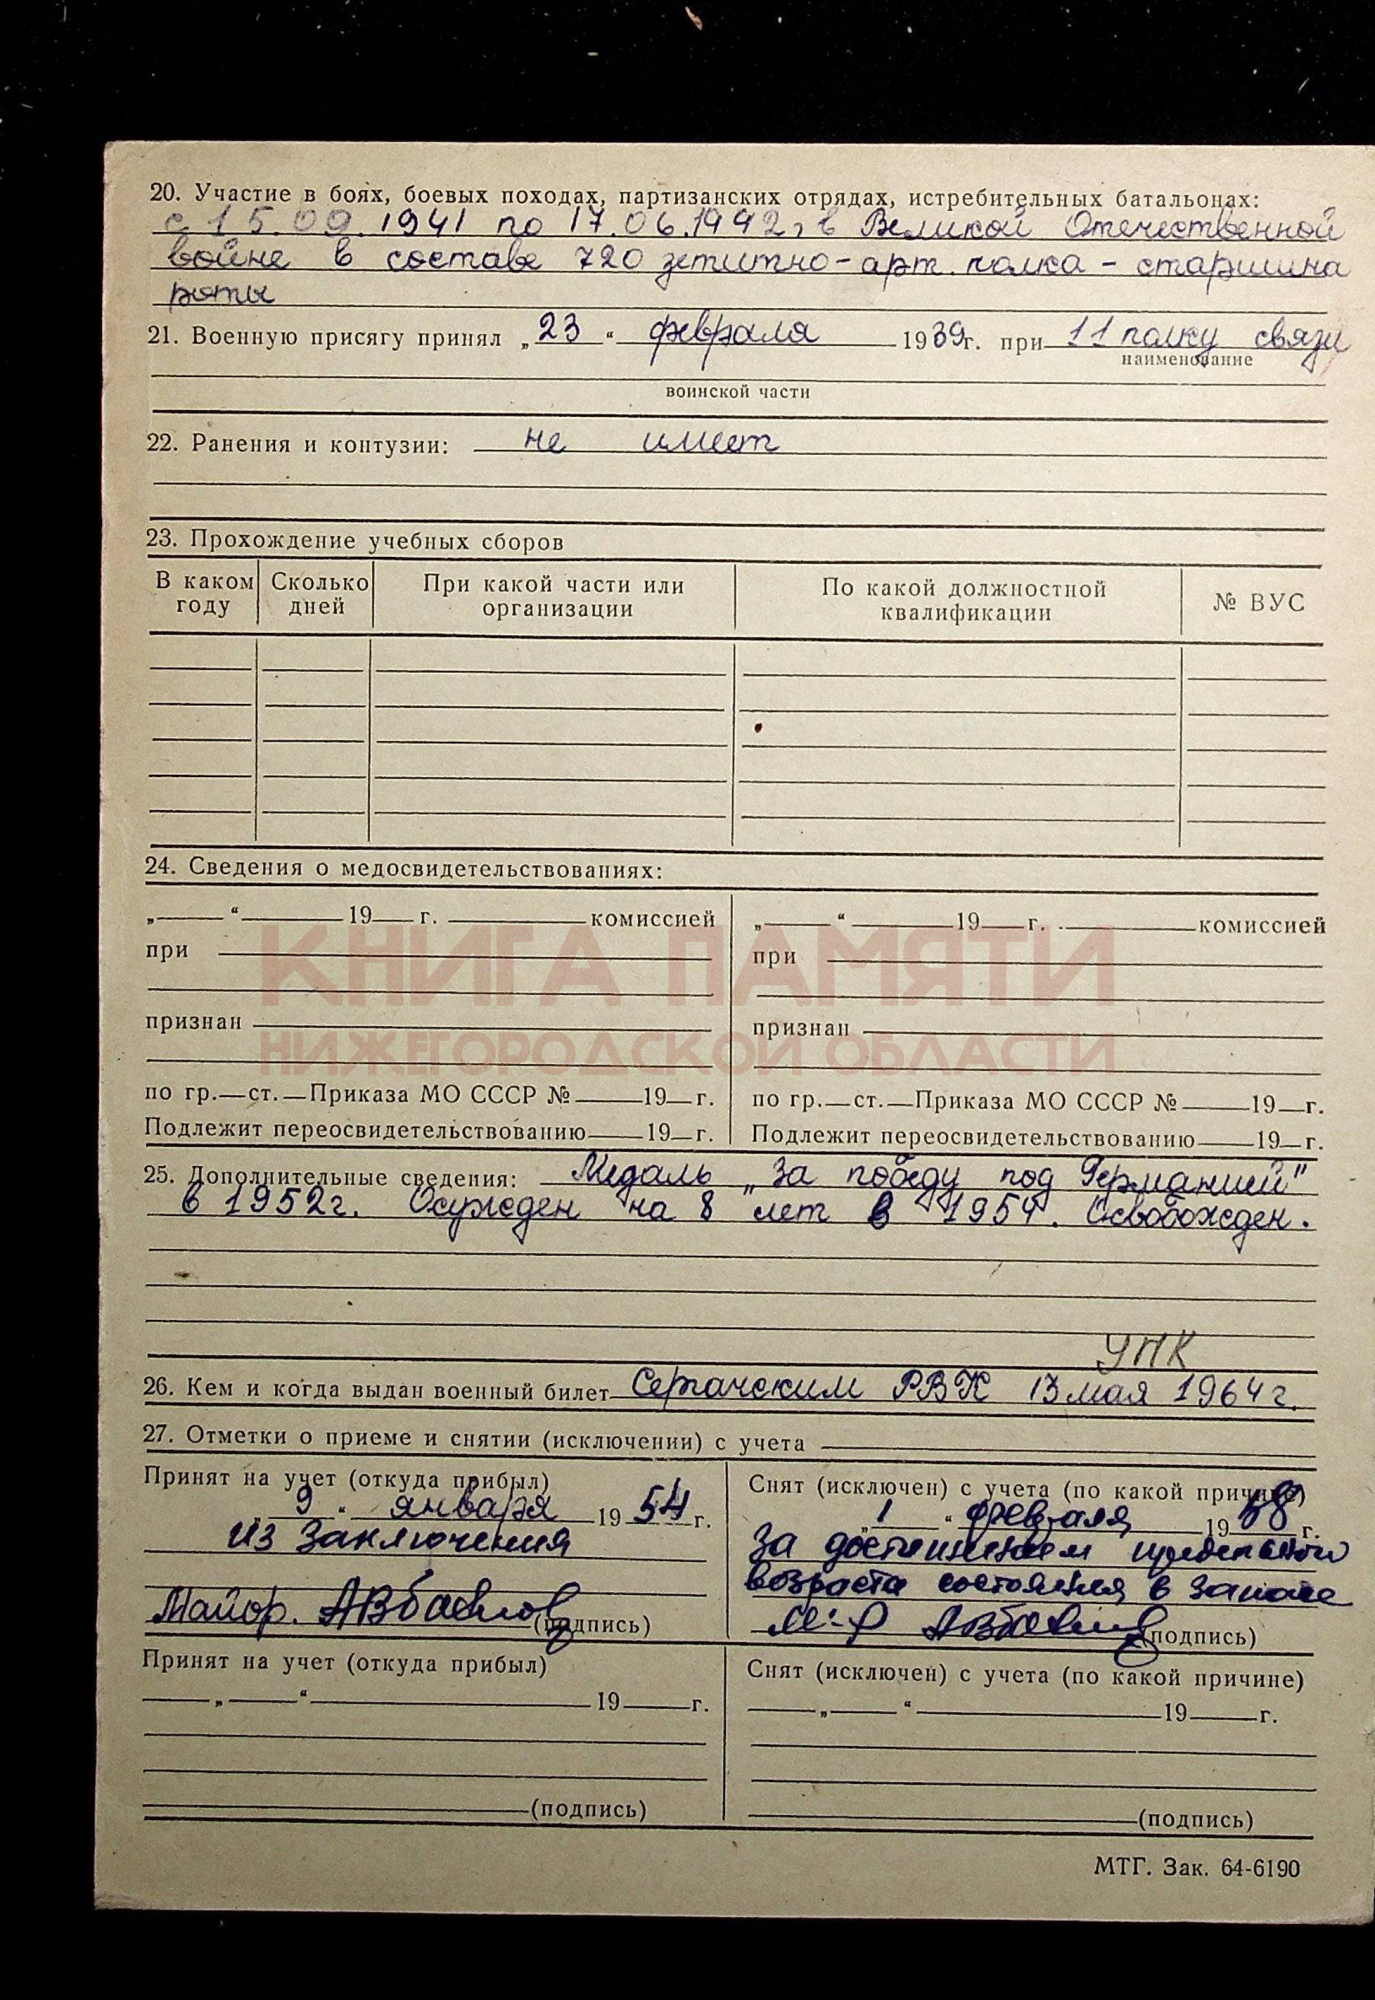 20. Участие в боях, боевых походах, партизанских отрядах, истребительных батальонах:
с 15.09.1941 по 17.06.1942г в Великой Отечественной
войне в составе 720 зенитно-арт. полка – старшина
роты
21. Военную присягу принял „23“ февраля 1939г. при 11 полку связи
наименование
воинской части
22. Ранения и контузии: не имеет
23. Прохождение учебных сборов
В каком году Сколько дней При какой части или организации По какой должностной квалификации № ВУС
24. Сведения о медосвидетельствованиях:
„ “ 19 г. комиссией „ “ 19 г. комиссией
при при
КНИГА ПАМЯТИ
признан признан
НИЖЕГОРОДСКОЙ ОБЛАСТИ
по гр. ст. Приказа МО СССР № 19 г. по гр. ст. Приказа МО СССР № 19 г.
Подлежит переосвидетельствованию 19 г. Подлежит переосвидетельствованию 19 г.
25. Дополнительные сведения: Медаль „За победу под Германией"
в 1952г. Осужден на 8 лет в 1954. Освобожден.
УНК
26. Кем и когда выдан военный билет Сергачским РВК 13 мая 1964г.
27. Отметки о приеме и снятии (исключении) с учета
Принят на учет (откуда прибыл) Снят (исключен) с учета (по какой причине)
9 “ января 1954 г. „1“ февраля 1968 г.
из Заключения За достижением предельного
возраста состояния в запасе
Майор. (подпись) М-р (подпись)
Принят на учет (откуда прибыл) Снят (исключен) с учета (по какой причине)
„ “ 19 г. „ “ 19 г.
(подпись) (подпись)
МТГ. Зак. 64-6190